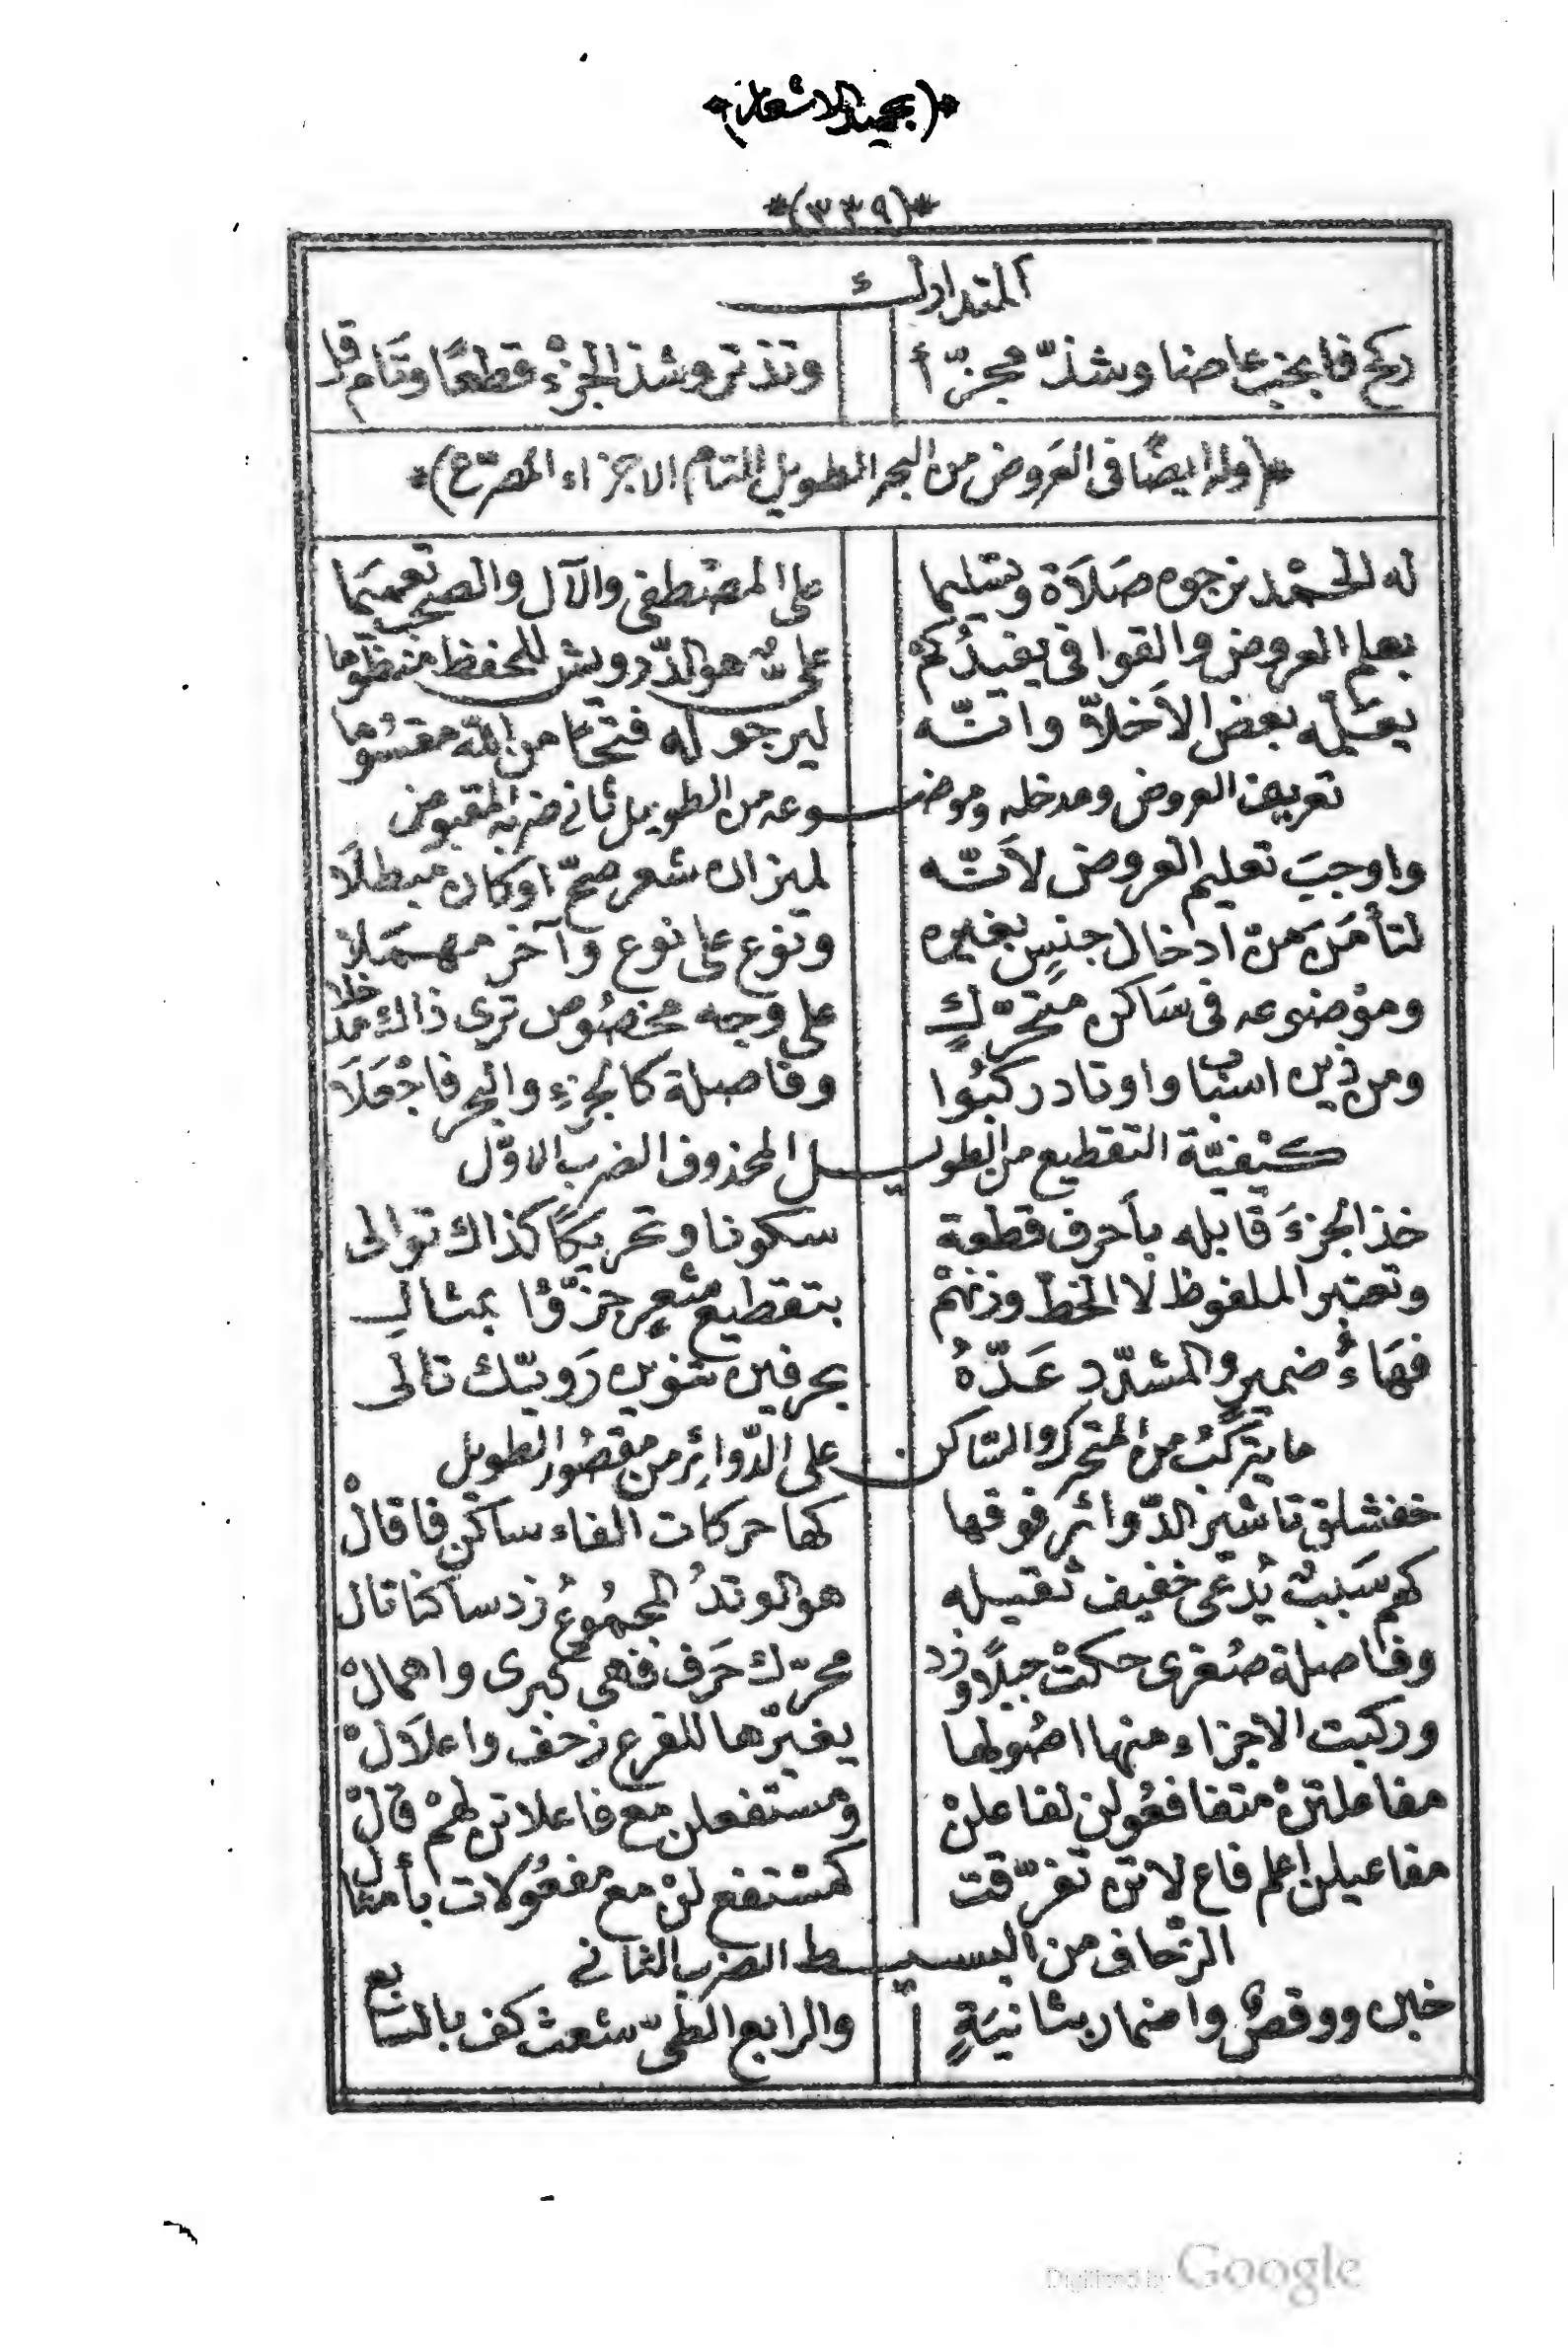 *(بحميد الاشعار)*
*(٣٣٩)*
المتدارك
ركح فا بخبب عاضنا وشذ مجزّ أ وتذ ترو وشذ الجزْء قطعًا وتَام قل
*(وله ايضًا فى العروض من البحر الطويل التام الاجزاء المصرّع)*
له الحمْد نرجوه صَلاَة وتسليما على المصْطفى والآل والصحب تعميَما
بعلم العروض والقوافى يفيدُكمْ علىٌّ هو الدّرويش للحفظ منظوُما
يعَلّمه بعض الاَخلاّ وانّه ليرجو له فتحًا من الله مقسُوما
تعريف العروض ومدخله وموضوعه من الطويل ثانى ضربه المقبوض
واوجبَ تعليم العروض لاَنّه لميزان شعر صحّ اوكان مبطلَا
لتأمَنَ منْ ادخال جنسٍ بغيره ونوع على نوع وآخر مهمَلا
وموْضوعه فى سَاكن متحرّكٍ على وجه مخصُوص ترى ذاك مدخلا
ومن ذين اسبْابٌ واوتاد ركبُوا وفاصلة كالجزءِ والبحر فاجْعَلَا
كيْفيّة التقطيع من الطويل المحذوف الضرب الاوّل
خذ الجزءَ قابله بأحرف قطعة سكونا وتحريكًا كذاك توالى
وتعتبر الملفوظ لا الخطّ وزنهمْ بتقطيع شعرٍ جزّؤا بمثال
فهَاءُ ضميرٍ والمشدّد عَدّهُ بحرفين تنوين رَويّك تالَى
ما يتركّبُ من المتحرك والسّاكن على الدّوائر من مقصُور الطويل
خفشلق تا شير الدّوائر فوقها كها حركات الفاء ساكن فا قالْ
كهم سَببٌ يُدعى خفيف ثقيله هو الوتدُ المجمُوعُ زد ساكنا تال
وفاصلة صُغرى حكتْ جبلًا وزد محرّك حَرف فهى كبرى واهمالْ
وركبت الاجزاء منها اصُولها يغيّرها للفرع زحف واعلاَلْ
مفاعلتنْ متفا فعُولن لفاعلنْ ومستفعلن مع فاعلاتن لهمْ قالْ
مفاعيلن اعلم فاع لاتن تفرّقت كمسْتفع لنْ مع مفعُولات بأمثال
الزّحاف من البسيط الضرب الثانى
خبن ووقصٌ واضمار بثانيَةٍ والرابع الطىّ شعث كف بالسّابع
Digitized by Google